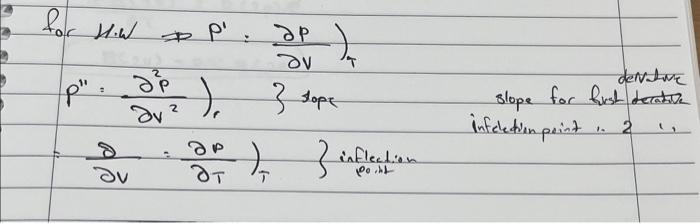 for H.W ⇒ P' : ∂P/∂V )T
P" : ∂²P/∂V² ), } slope
derivative
slope for first derative
infelction point " 2 "
= ∂/∂V = ∂P/∂T )T } inflection point